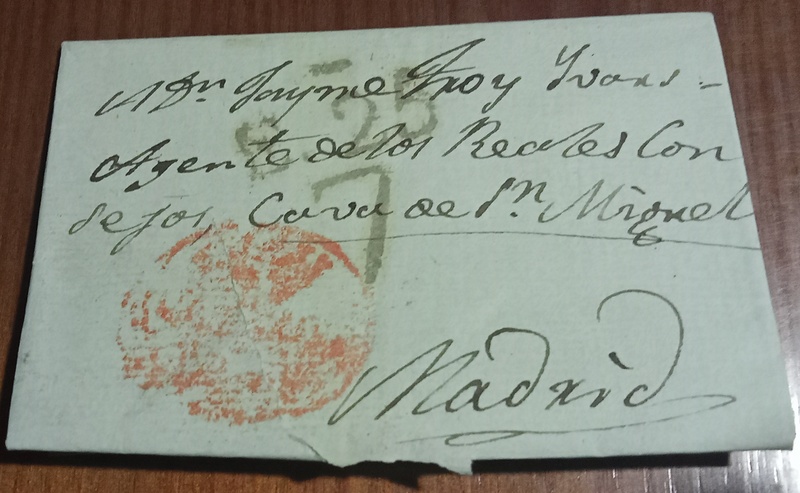 A Dn Jayme Troy Yvars =
Agente de los Reales Con
sejos, Cava de Sn Miguel
7
Madrid